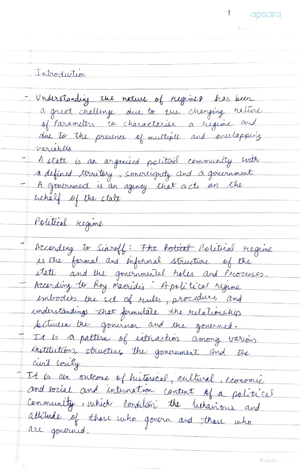 1 apsara
Introduction
- Understanding the nature of regimes has been
a great challenge due to the changing nature
of Parameters to characterise a regime and
due to the presence of multiple and overlapping
variables
- A state is an organised political community with
a defined territory, sovereignty and a government
- A government is an agency that acts on the
behalf of the state
Political regime
- According to Siaroff: The Political regime
is the formal and informal structure of the
state and the governmental roles and Processes.
- According to Roy Macridis : A political regime
embodies the set of rules, procedures and
understandings that formulate the relationship
between the governor and the governed.
- It is a pattern of interaction among various
institutions, structures, the government and the
civil society
- It is an outcome of historical, cultural, economic
and social and internation context of a political
community, which condition the behaviour and
attitude of those who govern and those who
are governed.